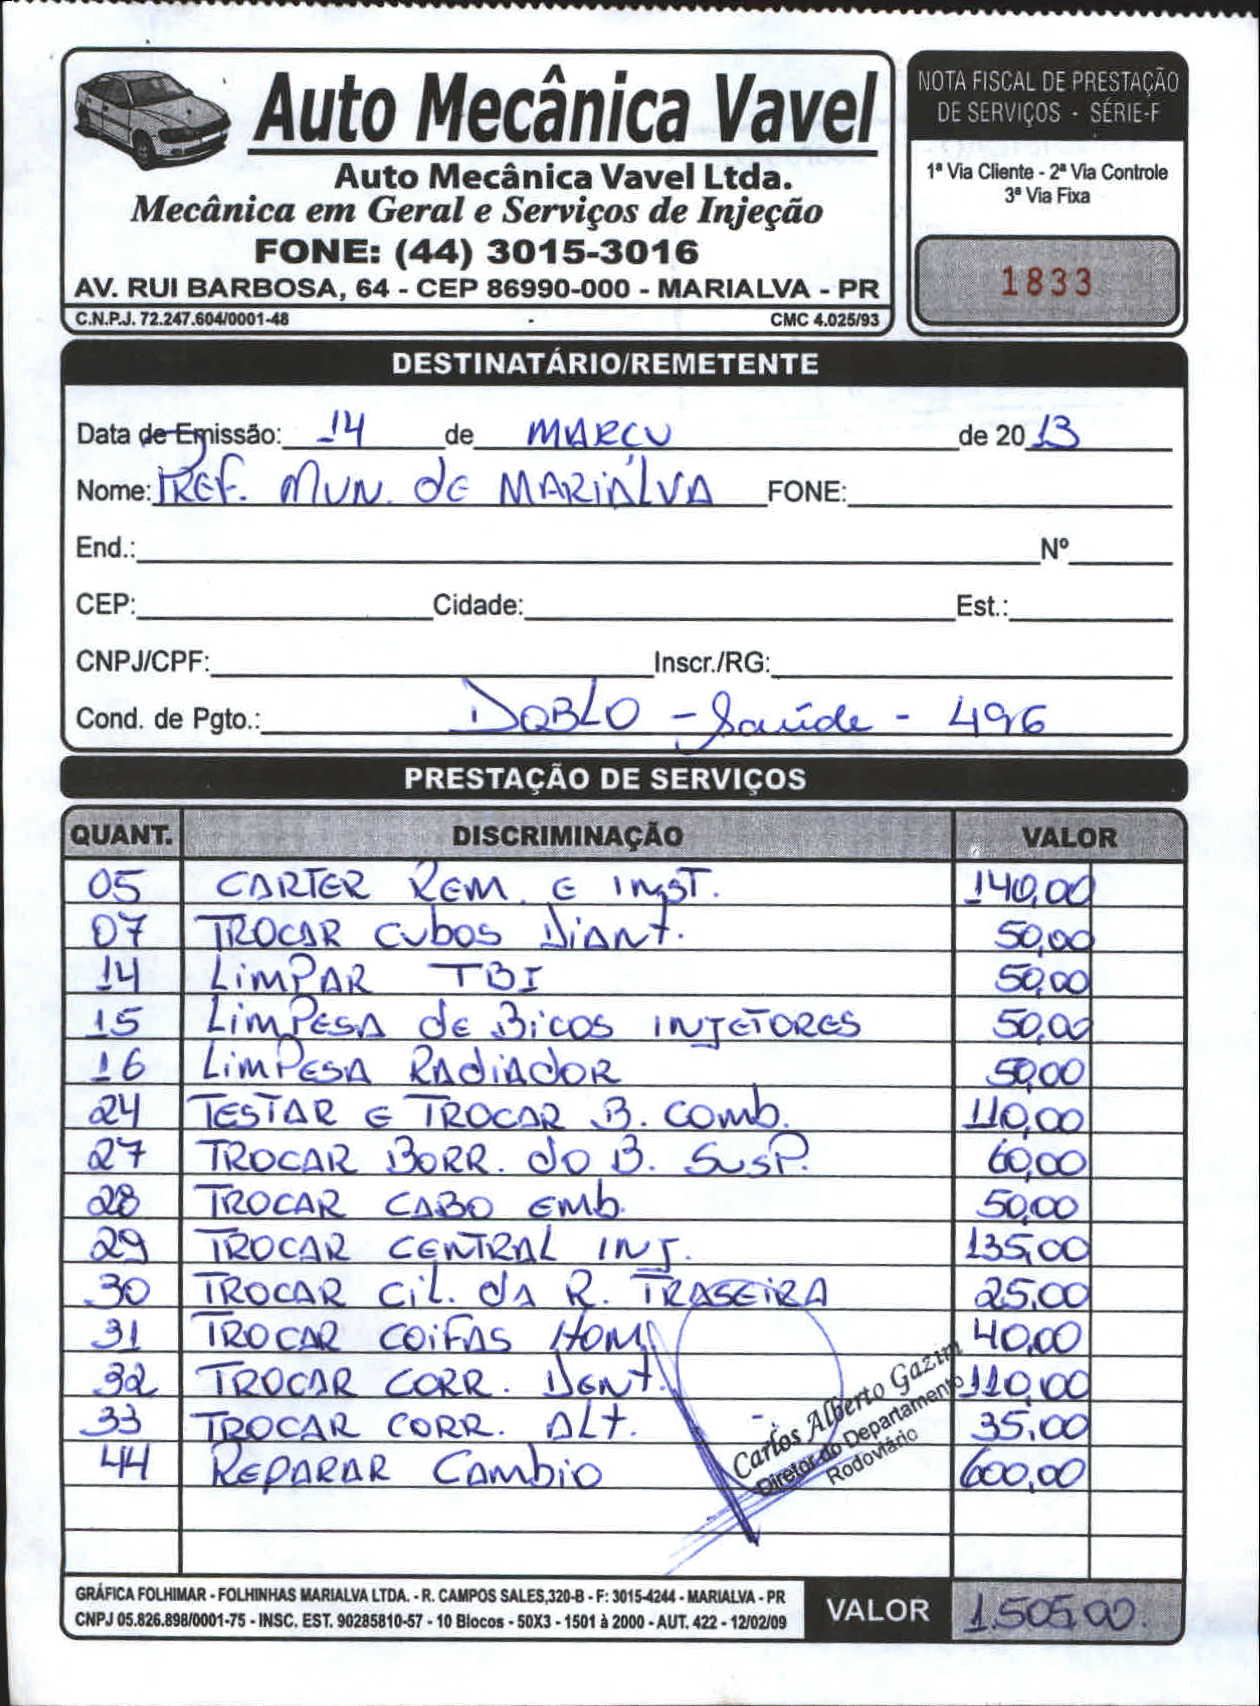 Auto Mecânica Vavel
Auto Mecânica Vavel Ltda.
Mecânica em Geral e Serviços de Injeção
FONE: (44) 3015-3016
AV. RUI BARBOSA, 64 - CEP 86990-000 - MARIALVA - PR
C.N.P.J. 72.247.604/0001-48 - CMC 4.025/93
NOTA FISCAL DE PRESTAÇÃO
DE SERVIÇOS - SÉRIE-F
1ª Via Cliente - 2ª Via Controle
3ª Via Fixa
1833
DESTINATÁRIO/REMETENTE
Data de Emissão: 14 de MARCU de 2013
Nome: PREF. MUN. de MARIALVA FONE:
End.: Nº
CEP: Cidade: Est.:
CNPJ/CPF: Inscr./RG:
Cond. de Pgto.: DOBLO - Saúde - 496
PRESTAÇÃO DE SERVIÇOS
QUANT. DISCRIMINAÇÃO VALOR
05 CARTER REM. E INST. 140,00
07 TROCAR CUBOS DIANT. 50,00
14 LIMPAR TBI 50,00
15 LIMPESA de BICOS INJETORES 50,00
16 LIMPESA RADIADOR 50,00
24 TESTAR E TROCAR B. COMB. 110,00
27 TROCAR BORR. do B. SUSP. 60,00
28 TROCAR CABO EMB. 50,00
29 TROCAR CENTRAL INJ. 135,00
30 TROCAR CIL. DA R. TRASEIRA 25,00
31 TROCAR COIFAS HOM 40,00
32 TROCAR CORR. DENT. 110,00
33 TROCAR CORR. ALT. 35,00
44 REPARAR CAMBIO 600,00
Carlos Alberto Gazim
Diretor do Departamento
Rodoviário
GRÁFICA FOLHIMAR - FOLHINHAS MARIALVA LTDA. - R. CAMPOS SALES,320-B - F: 3015-4244 - MARIALVA - PR
CNPJ 05.826.898/0001-75 - INSC. EST. 90285810-57 - 10 Blocos - 50X3 - 1501 à 2000 - AUT. 422 - 12/02/09
VALOR 1.505,00